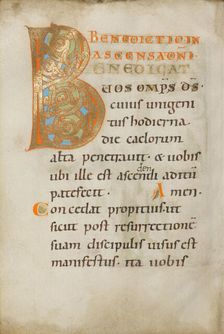 BENEDICTIO IN
ASCENSA DNI
BENEDICAT
VOS OMPS DS
cuius unigeni
tus hodierna
die caelorum
alta penetrauit. & uobis
ubi ille est ascendi aditū
dendi
patefecit. Amen.
Concedat propitius ut
sicut post resurrectionē
suam discipulis uisus est
manifestus. ita uobis